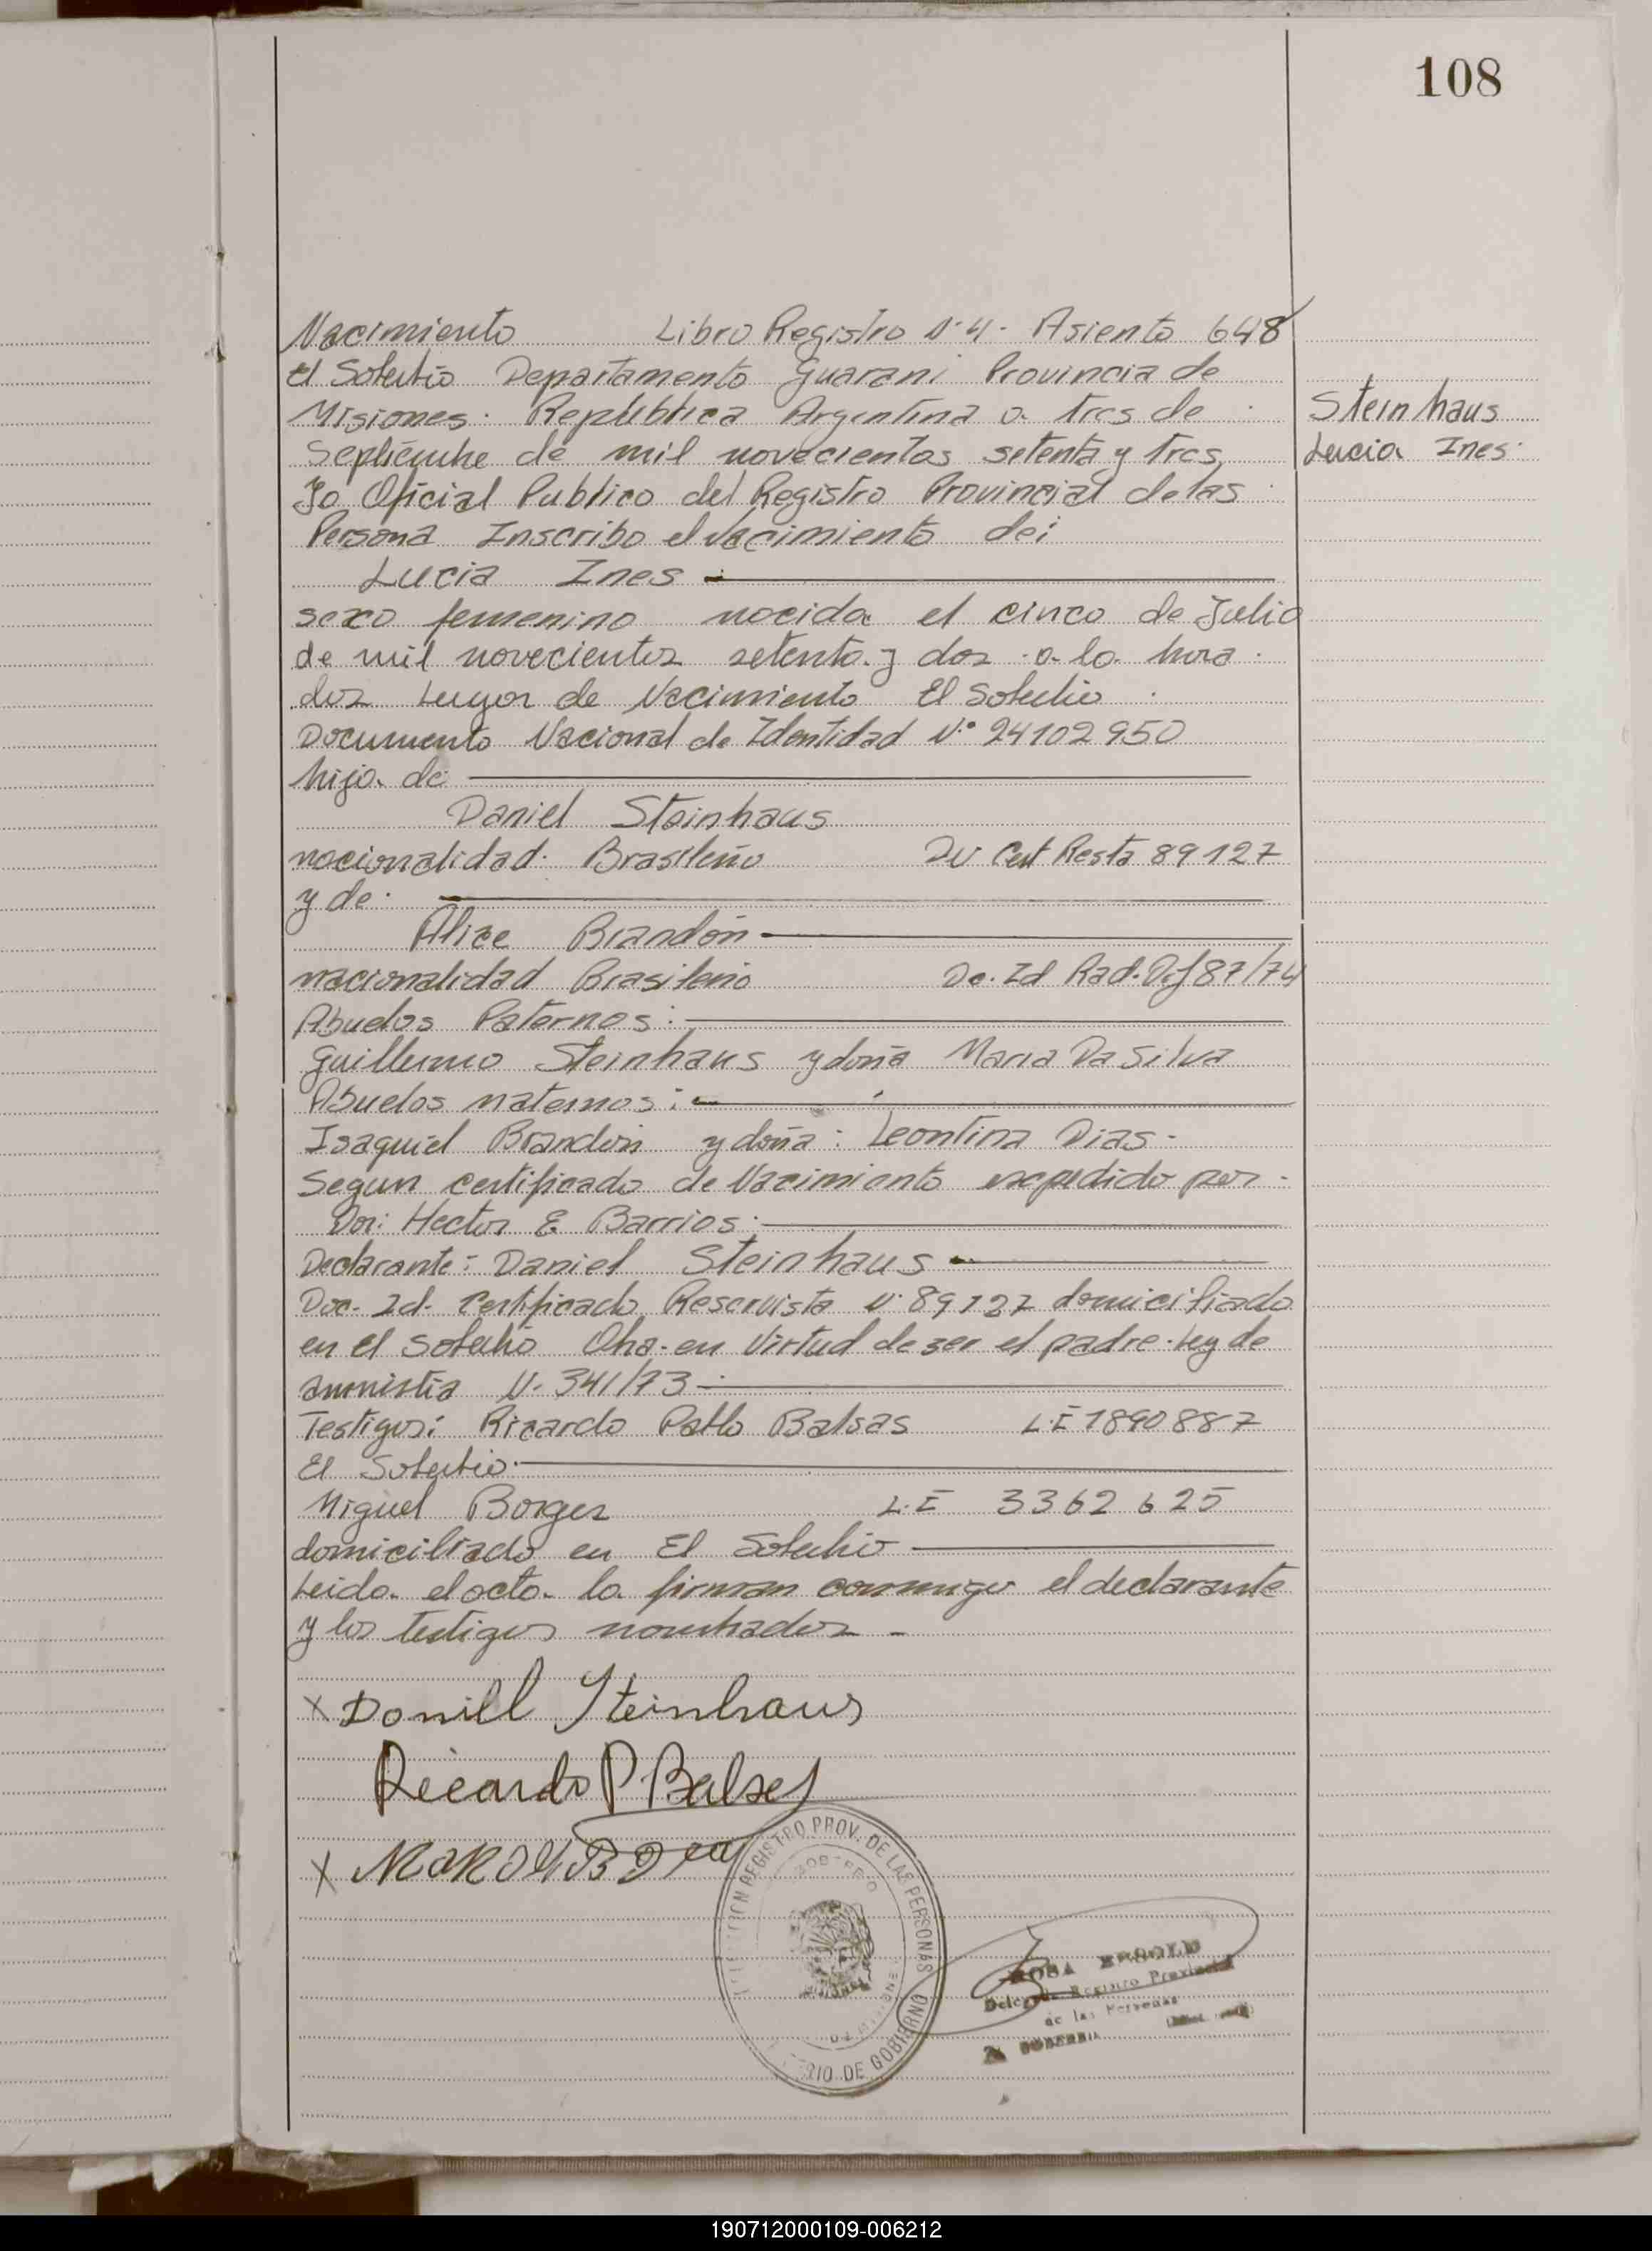 108
Nacimiento Libro Registro N. 4. Asiento 648
El Soberbio Departamento Guarani Provincia de
Misiones. Republica Argentina a tres de
Septiembre de mil novecientos setenta y tres,
Yo Oficial Publico del Registro Provincial de las
Persona Inscribo el Nacimiento de:
Lucia Ines
sexo femenino nacida el cinco de Julio
de mil novecientos setenta y dos a la hora
dos Lugar de Nacimiento El Soberbio
Documento Nacional de Identidad N° 24102950
hija de:
Daniel Steinhaus
nacionalidad. Brasileño Cert Resta 89127
y de:
Alice Brandón
nacionalidad Brasileño Dc. Id Rad. 87/74
Abuelos Paternos:
Guillermo Steinhaus y doña Maria Da Silva
Abuelos maternos:
Isaquiel Brandón y doña: Leontina Dias.
Segun certificado de Nacimiento expedido por
Dor: Hector E. Barrios.
Declarante: Daniel Steinhaus
Doc. Id. Certificado Reservista N. 89127 domiciliado
en El Soberbio en Virtud de ser el padre. Ley de
amnistia N. 341/73
Testigos: Ricardo Pablo Balsas L.E 1890887
El Soberbio.
Miguel Borges L.E 3362625
domiciliado en El Soberbio
Leida el acta la firman conmigo el declarante
y los testigos nombrados
Steinhaus
Lucia Ines.
x Daniel Steinhaus
Ricardo P Balsas
x
REGISTRO PROV. DE LAS PERSONAS
DE GOBIERNO
ROSA
Registro Provincial
de las Personas
190712000109-006212